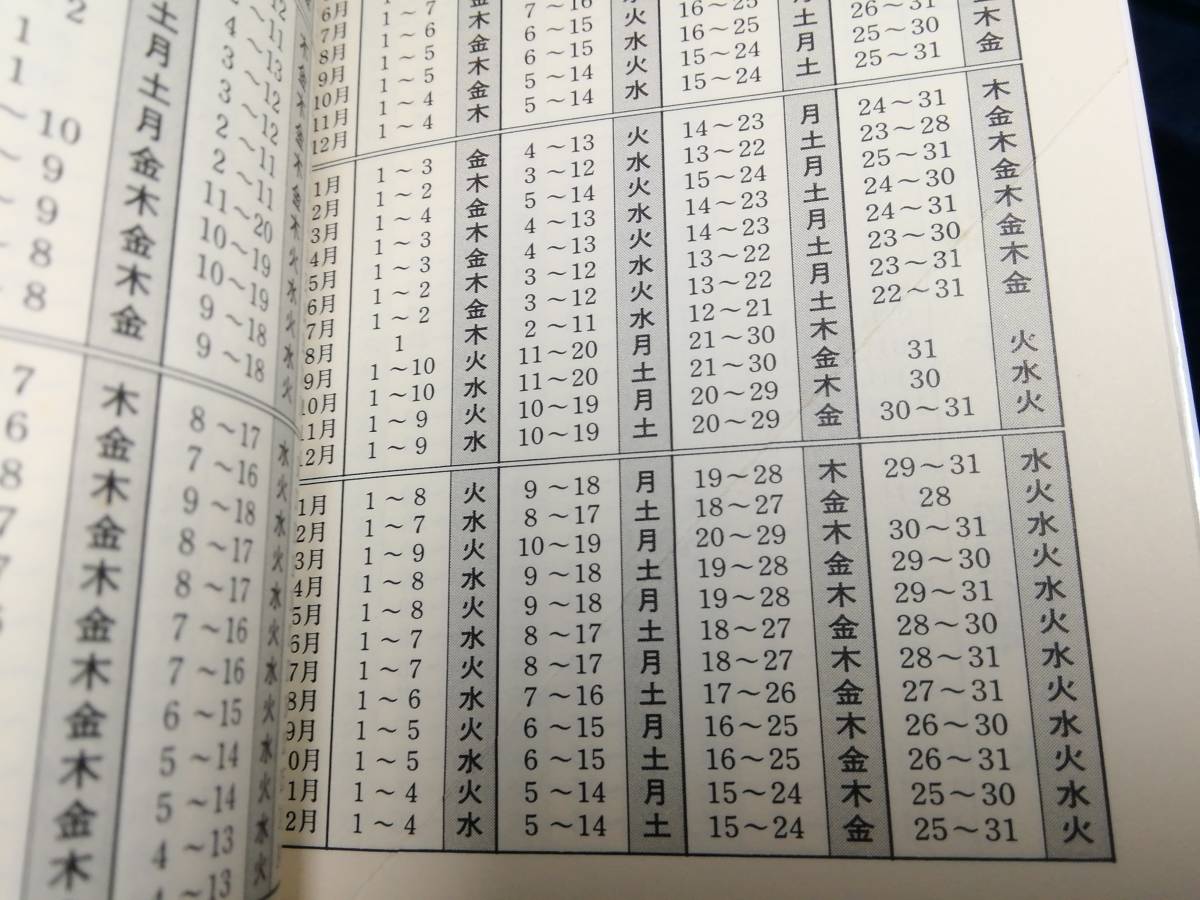 10 月 2～11
9 金 11～20
9 木 10～19
8 金 10～19
8 木 9～18 水
金 9～18 火
7 木 8～17 水
6 金 7～16 火
8 木 9～18 水
7 金 8～17 火
木 8～17 水
金 7～16 火
木 7～16 水
金 6～15 火
木 5～14 水
金 5～14 火
木 4～13 水
4～13 火
7月 1～7 金
8月 1～6 木 7～16 水
9月 1～5 金 6～15 火 16～25 月
10月 1～5 木 6～15 水 16～25 土 26～31 金
11月 1～4 金 5～14 火 15～24 月 25～30 木
12月 1～4 木 5～14 水 15～24 土 25～31 金
1月 1～3 金 4～13 火 14～23 月 24～31 木
2月 1～2 木 3～12 水 13～22 土 23～28 金
3月 1～4 金 5～14 火 15～24 月 25～31 木
4月 1～3 木 4～13 水 14～23 土 24～30 金
5月 1～3 金 4～13 火 14～23 月 24～31 木
6月 1～2 木 3～12 水 13～22 土 23～30 金
7月 1～2 金 3～12 火 13～22 月 23～31 木
8月 1 木 2～11 水 12～21 土 22～31 金
9月 1～10 火 11～20 月 21～30 木
10月 1～10 水 11～20 土 21～30 金 31 火
11月 1～9 火 10～19 月 20～29 木 30 水
12月 1～9 水 10～19 土 20～29 金 30～31 火
1月 1～8 火 9～18 月 19～28 木 29～31 水
2月 1～7 水 8～17 土 18～27 金 28 火
3月 1～9 火 10～19 月 20～29 木 30～31 水
4月 1～8 水 9～18 土 19～28 金 29～30 火
5月 1～8 火 9～18 月 19～28 木 29～31 水
6月 1～7 水 8～17 土 18～27 金 28～30 火
7月 1～7 火 8～17 月 18～27 木 28～31 水
8月 1～6 水 7～16 土 17～26 金 27～31 火
9月 1～5 火 6～15 月 16～25 木 26～30 水
0月 1～5 水 6～15 土 16～25 金 26～31 火
1月 1～4 火 5～14 月 15～24 木 25～30 水
2月 1～4 水 5～14 土 15～24 金 25～31 火